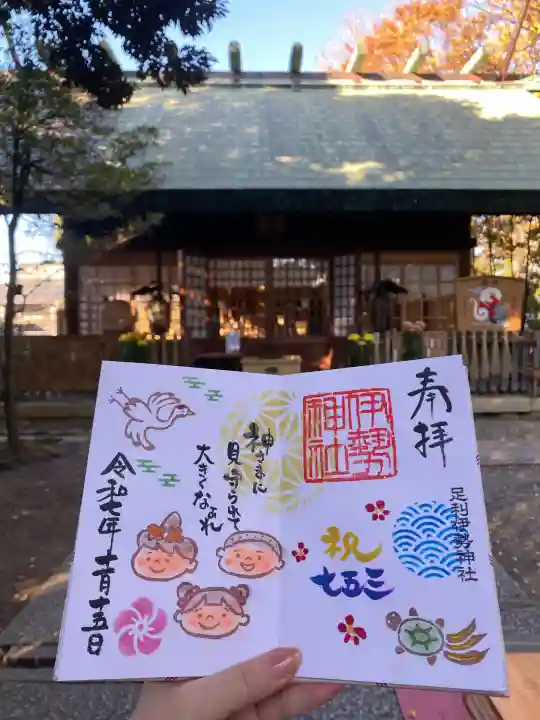 奉拝
伊勢
神社
足利伊勢神社
祝
七五三
神さまに
見守られて
大きくなぁれ
令和七年十一月十五日